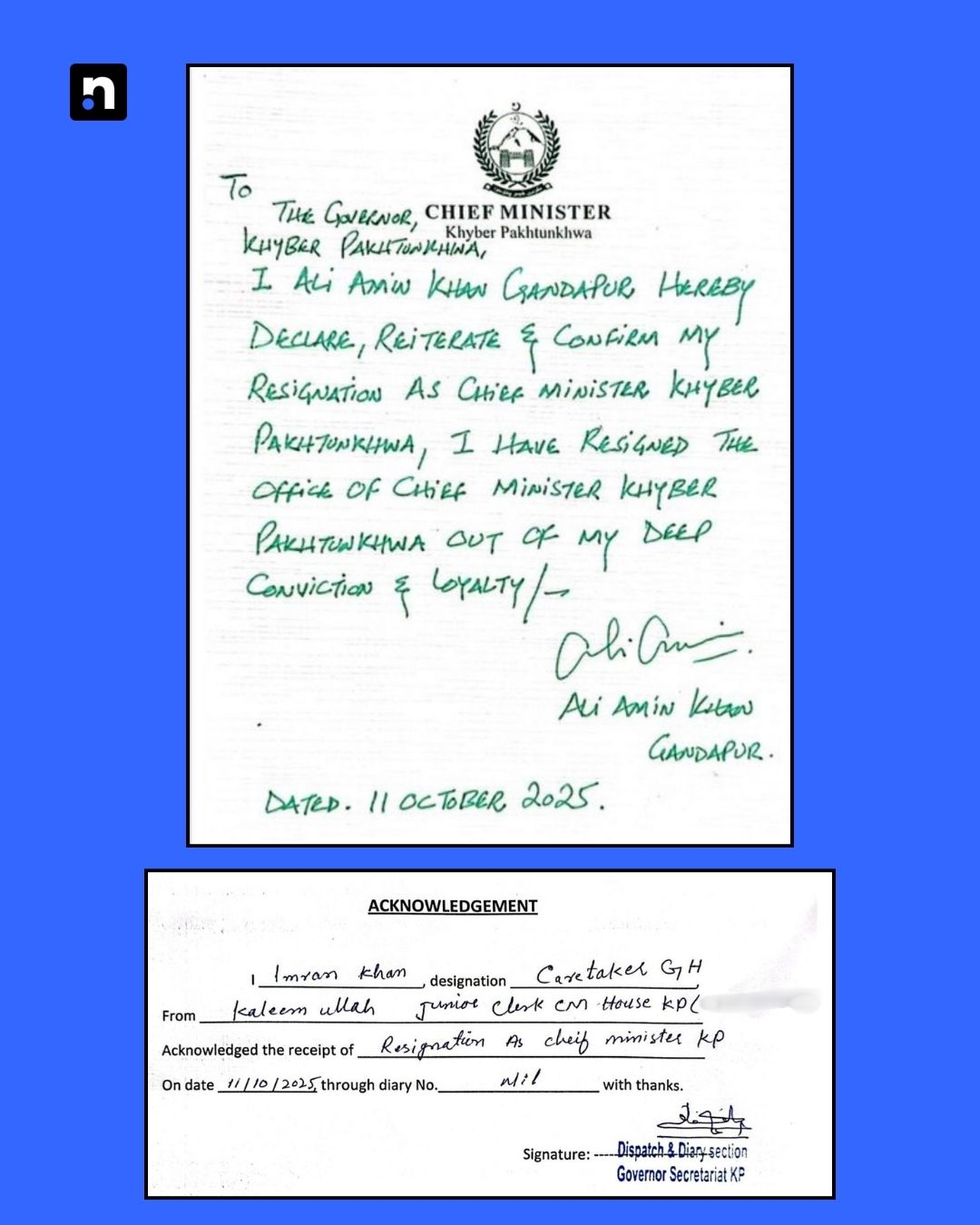 n
To
The Governor,
CHIEF MINISTER
Khyber Pakhtunkhwa
Khyber Pakhtunkhwa,
I Ali Amin Khan Gandapur Hereby
Declare, Reiterate & Confirm my
Resignation As Chief Minister Khyber
Pakhtunkhwa, I Have Resigned The
Office of Chief Minister Khyber
Pakhtunkhwa out of my Deep
Conviction & Loyalty/-
Ali Amin Khan
Gandapur.
Dated. 11 October 2025.
ACKNOWLEDGEMENT
I Imran Khan, designation Caretaker GH
From kaleem ullah Junior Clerk CM House KP
Acknowledged the receipt of Resignation As cheif minister KP
On date 11/10/2025, through diary No. Nil with thanks.
Signature: ----Dispatch & Diary section
Governor Secretariat KP